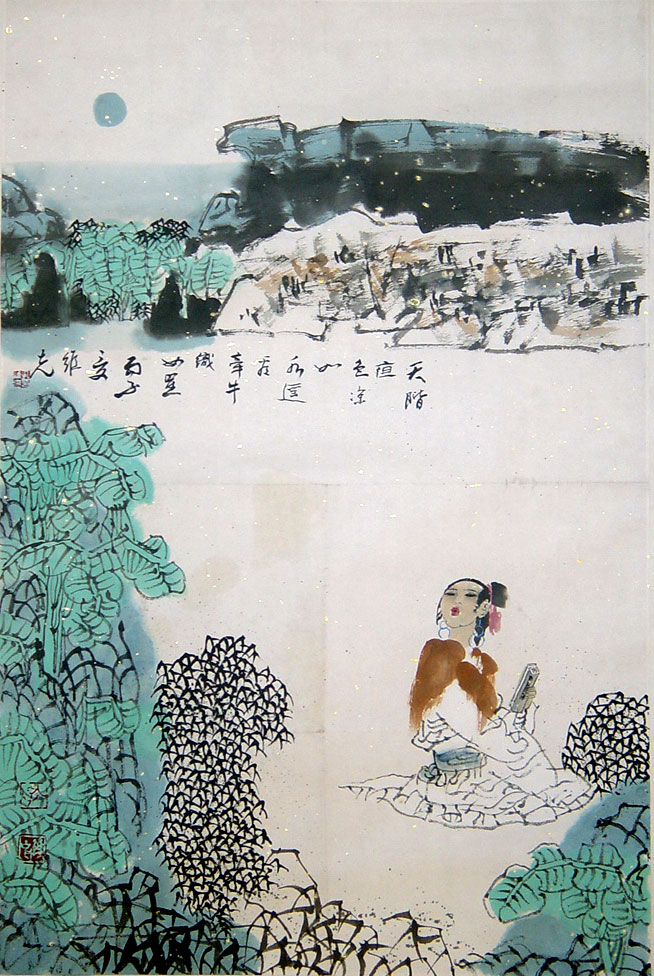 天階
夜
色涼
如
水
看
牽牛
織
女星
丙子
夏
維